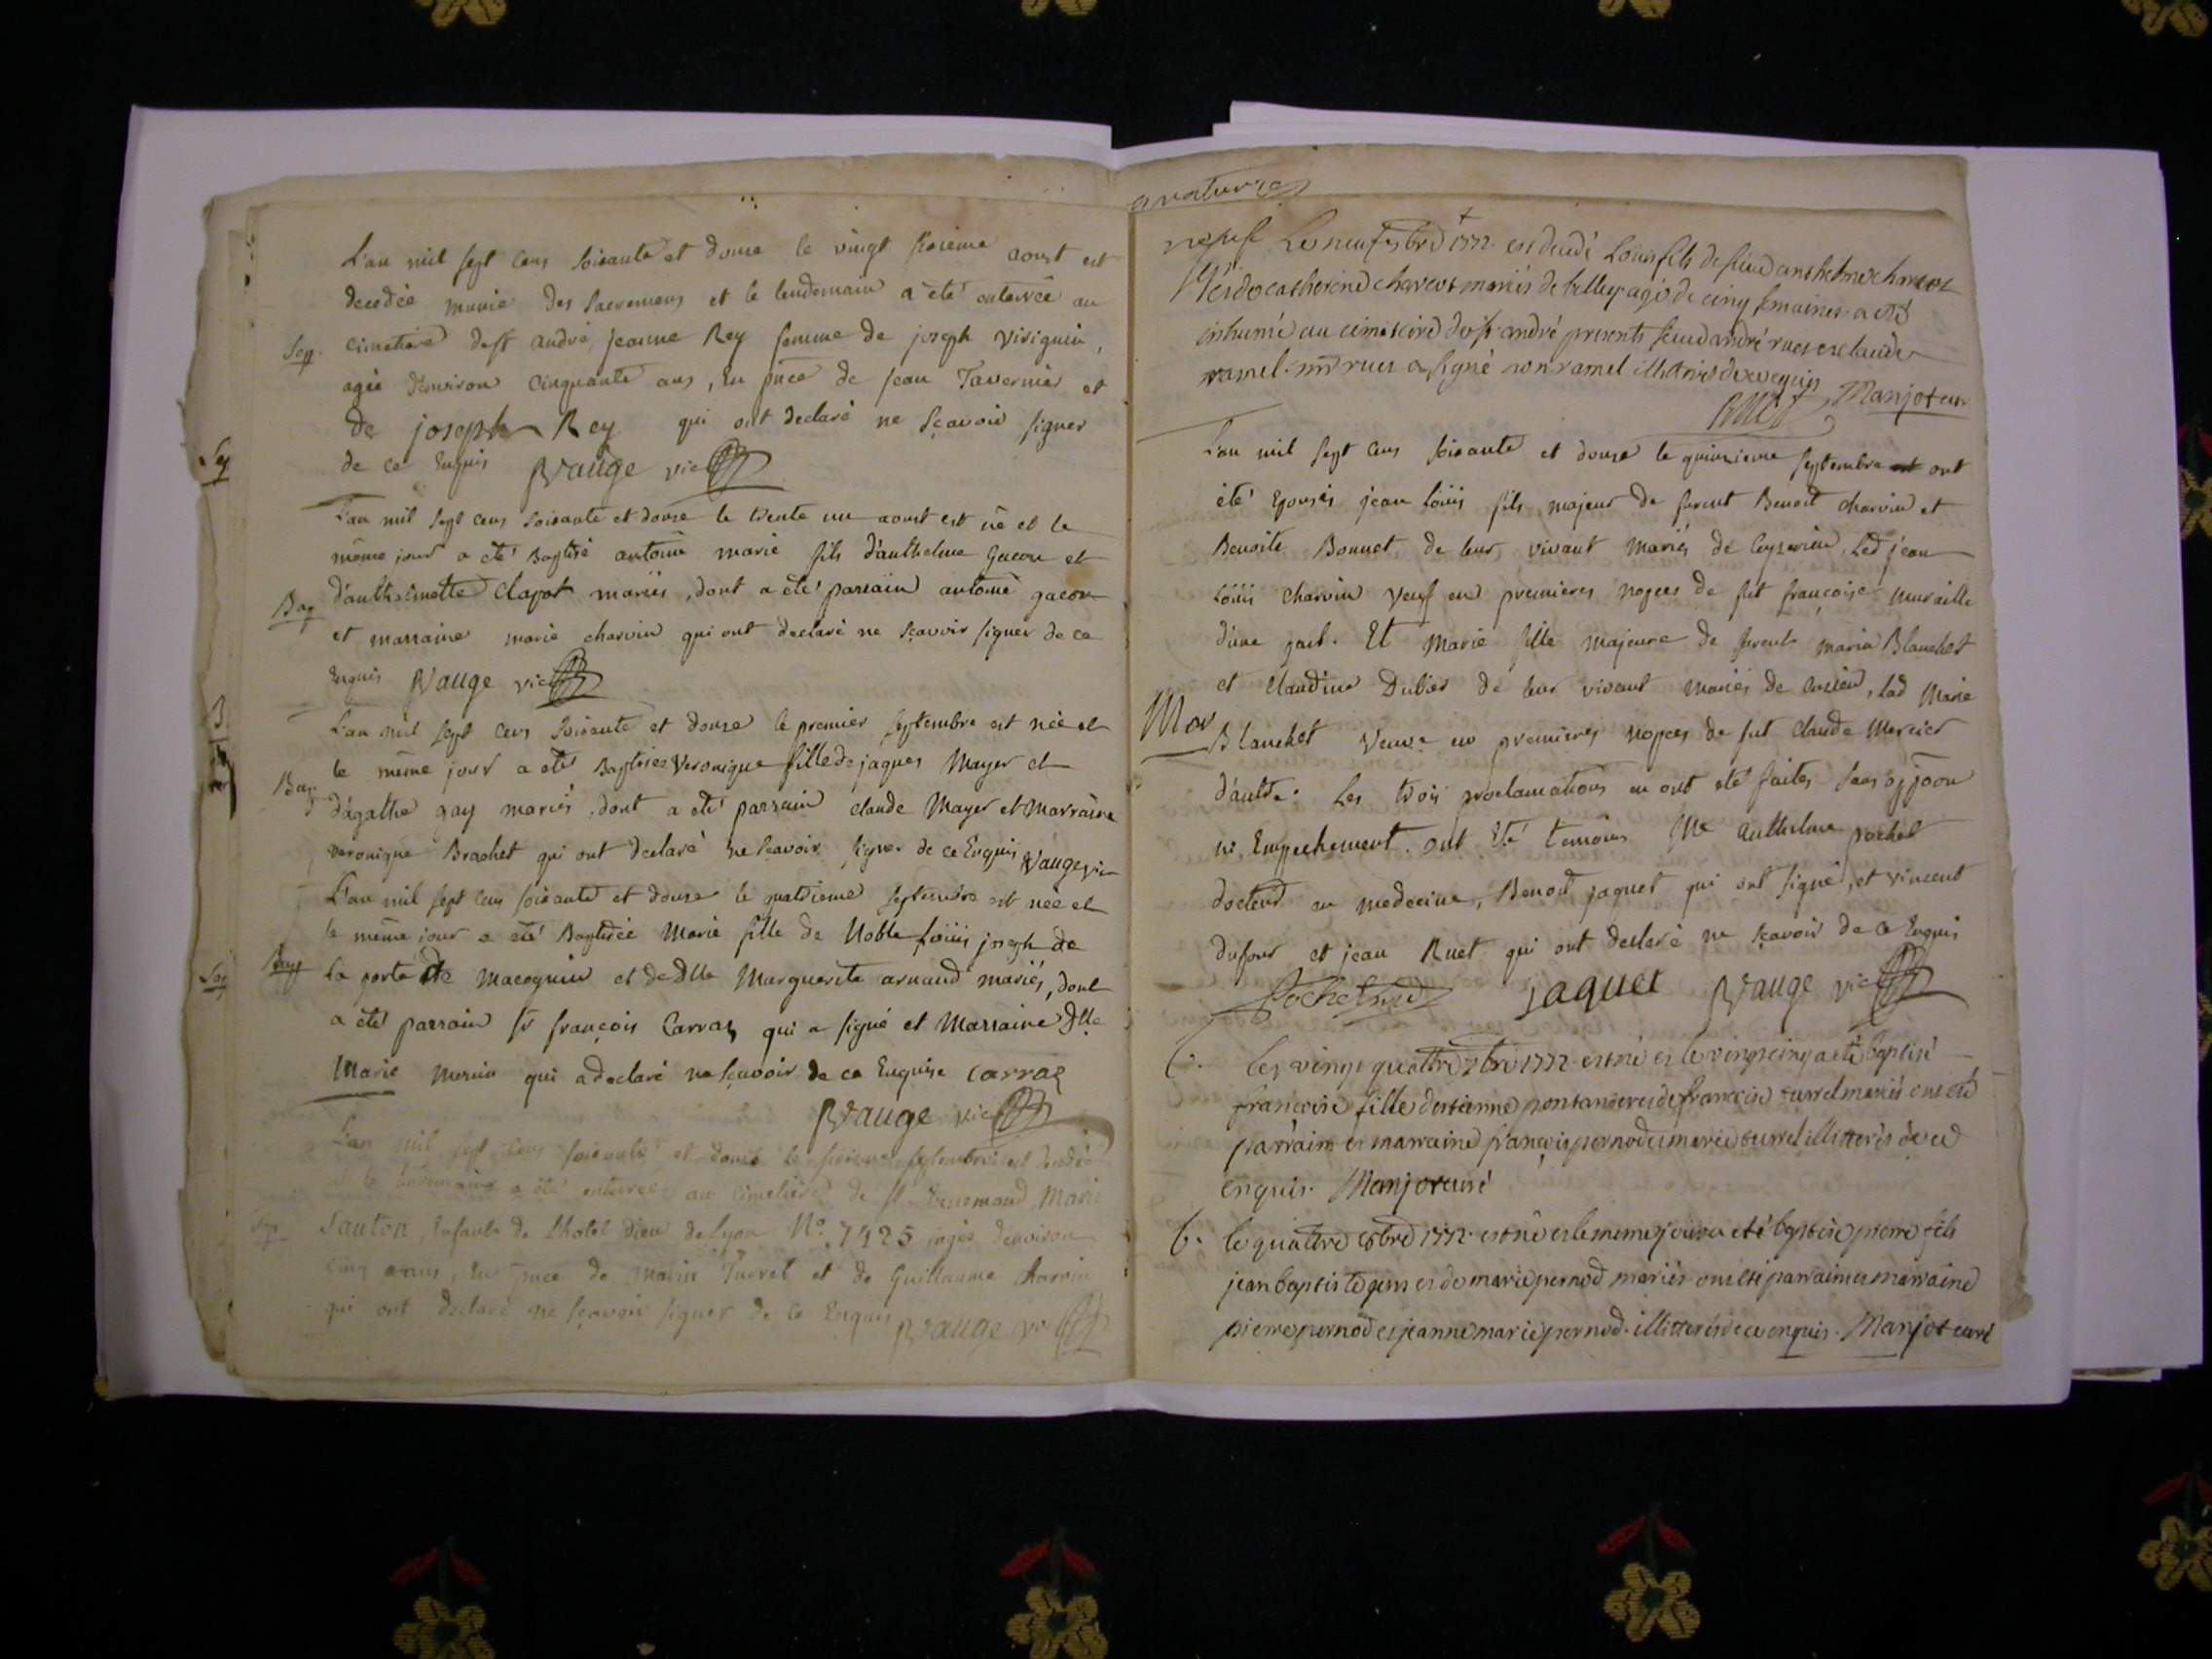 L'an mil sept cens soisante et douse le vingt sixieme aoust est
decedée munie des sacremens et le lendemain a été enterrée au
Sep. cimetiere de st andré, jeanne Rey femme de joseph visignin,
agée d'environ cinquante ans, En pnce de jean Tavernier et
de joseph Rey qui ont declaré ne sçavoir signer
Sep de ce Enquis Vauge vic
L'an mil sept cens soisante et douse le trente un aoust est né et le
même jour a été Baptisé antoine marie fils d'anthelme gacon et
Bap d'anthelmette Clapot mariés, dont a été parrain antoine gacon
et marraine marie charvin qui ont declaré ne sçavoir signer de ce
Enquis Vauge vic
L'an mil sept cens soisante et douse le premier septembre est née et
le même jour a eté Baptisée Veronique fille de jaques Mayer et
Bap d'agathe gay mariés, dont a eté parrain claude Mayer et Marraine
veronique Brachet qui ont declaré ne sçavoir signer de ce Enquis Vauge vic
L'an mil sept cens soisante et douse le quatrieme septembre est née et
le même jour a été Baptisée Marie fille de Noble Loüis joseph de
Sep Bap la porte de Macognin et de Dlle Marguerite arnaud mariés, dont
a été parrain sr françois Carraz qui a signé et Marraine Dlle
Marie qui a declaré ne sçavoir de ce Enquise carraz
Vauge vic
L'an mil sept cens soisante et douse le septembre est decedée
et le lendemain a été enterrée au cimetiere de st Marie
Sep Santon, Enfants de Lhotel Dieu de Lyon No. 7425 agée denviron
cinq , En pnce de marin Turrel et de Guillaume charvin
qui ont declaré ne sçavoir signer de ce Enquis Vauge vic
Le neuf 7bre 1772 est decedé Loüis fils de anthelme charvet
et de catherine charvet mariés de belley agé de cinq semaines a eté
inhumé au cimetiere de st andré presents andré ruet et claude
ramel. ruet a signé non ramel illitteré de ce enquis
Ruet Manjot curé
L'an mil sept cens soisante et douse le quinsieme septembre ont
été Epousés jean loüis fils majeur de furent Benoit charvin et
Benoite Bonnet de leur vivant mariés de Ceyserieu, Led jean
loüis charvin veuf en premieres nopces de fut françoise muraille
d'une part. Et Marie fille majeure de furent marin Blanchet
et claudine Dubier de leur vivant mariés de , lad Marie
Mar Blanchet veuve en premieres nopces de fut claude Mercier
d'autre. Les trois proclamations en ont eté faites sans oppôon
ni Empechement. ont Eté temoins Me anthelme pochet
docteur en medecine, Benoit jaquet qui ont signé, et vincent
dufour et jean Ruet qui ont declaré ne sçavoir de ce Enquis
Pochet jaquet Vauge vic
b. Les vingt quattre 7bre 1772 est né et le vingt cinq a eté baptisé
françoise fille d'etienne pontanier et de françoise turrel mariés ont été
parrain et marraine françois pernod et marie turrel illitterés de ce
enquis. Manjot curé
b. le quattre 8bre 1772 est né et le meme jour a eté baptisé pierre fils
jean baptiste gens et de marie pernod mariés ont eté parrain et marraine
pierre pernod et jeanne marie pernod. illitterés de ce enquis. Manjot curé